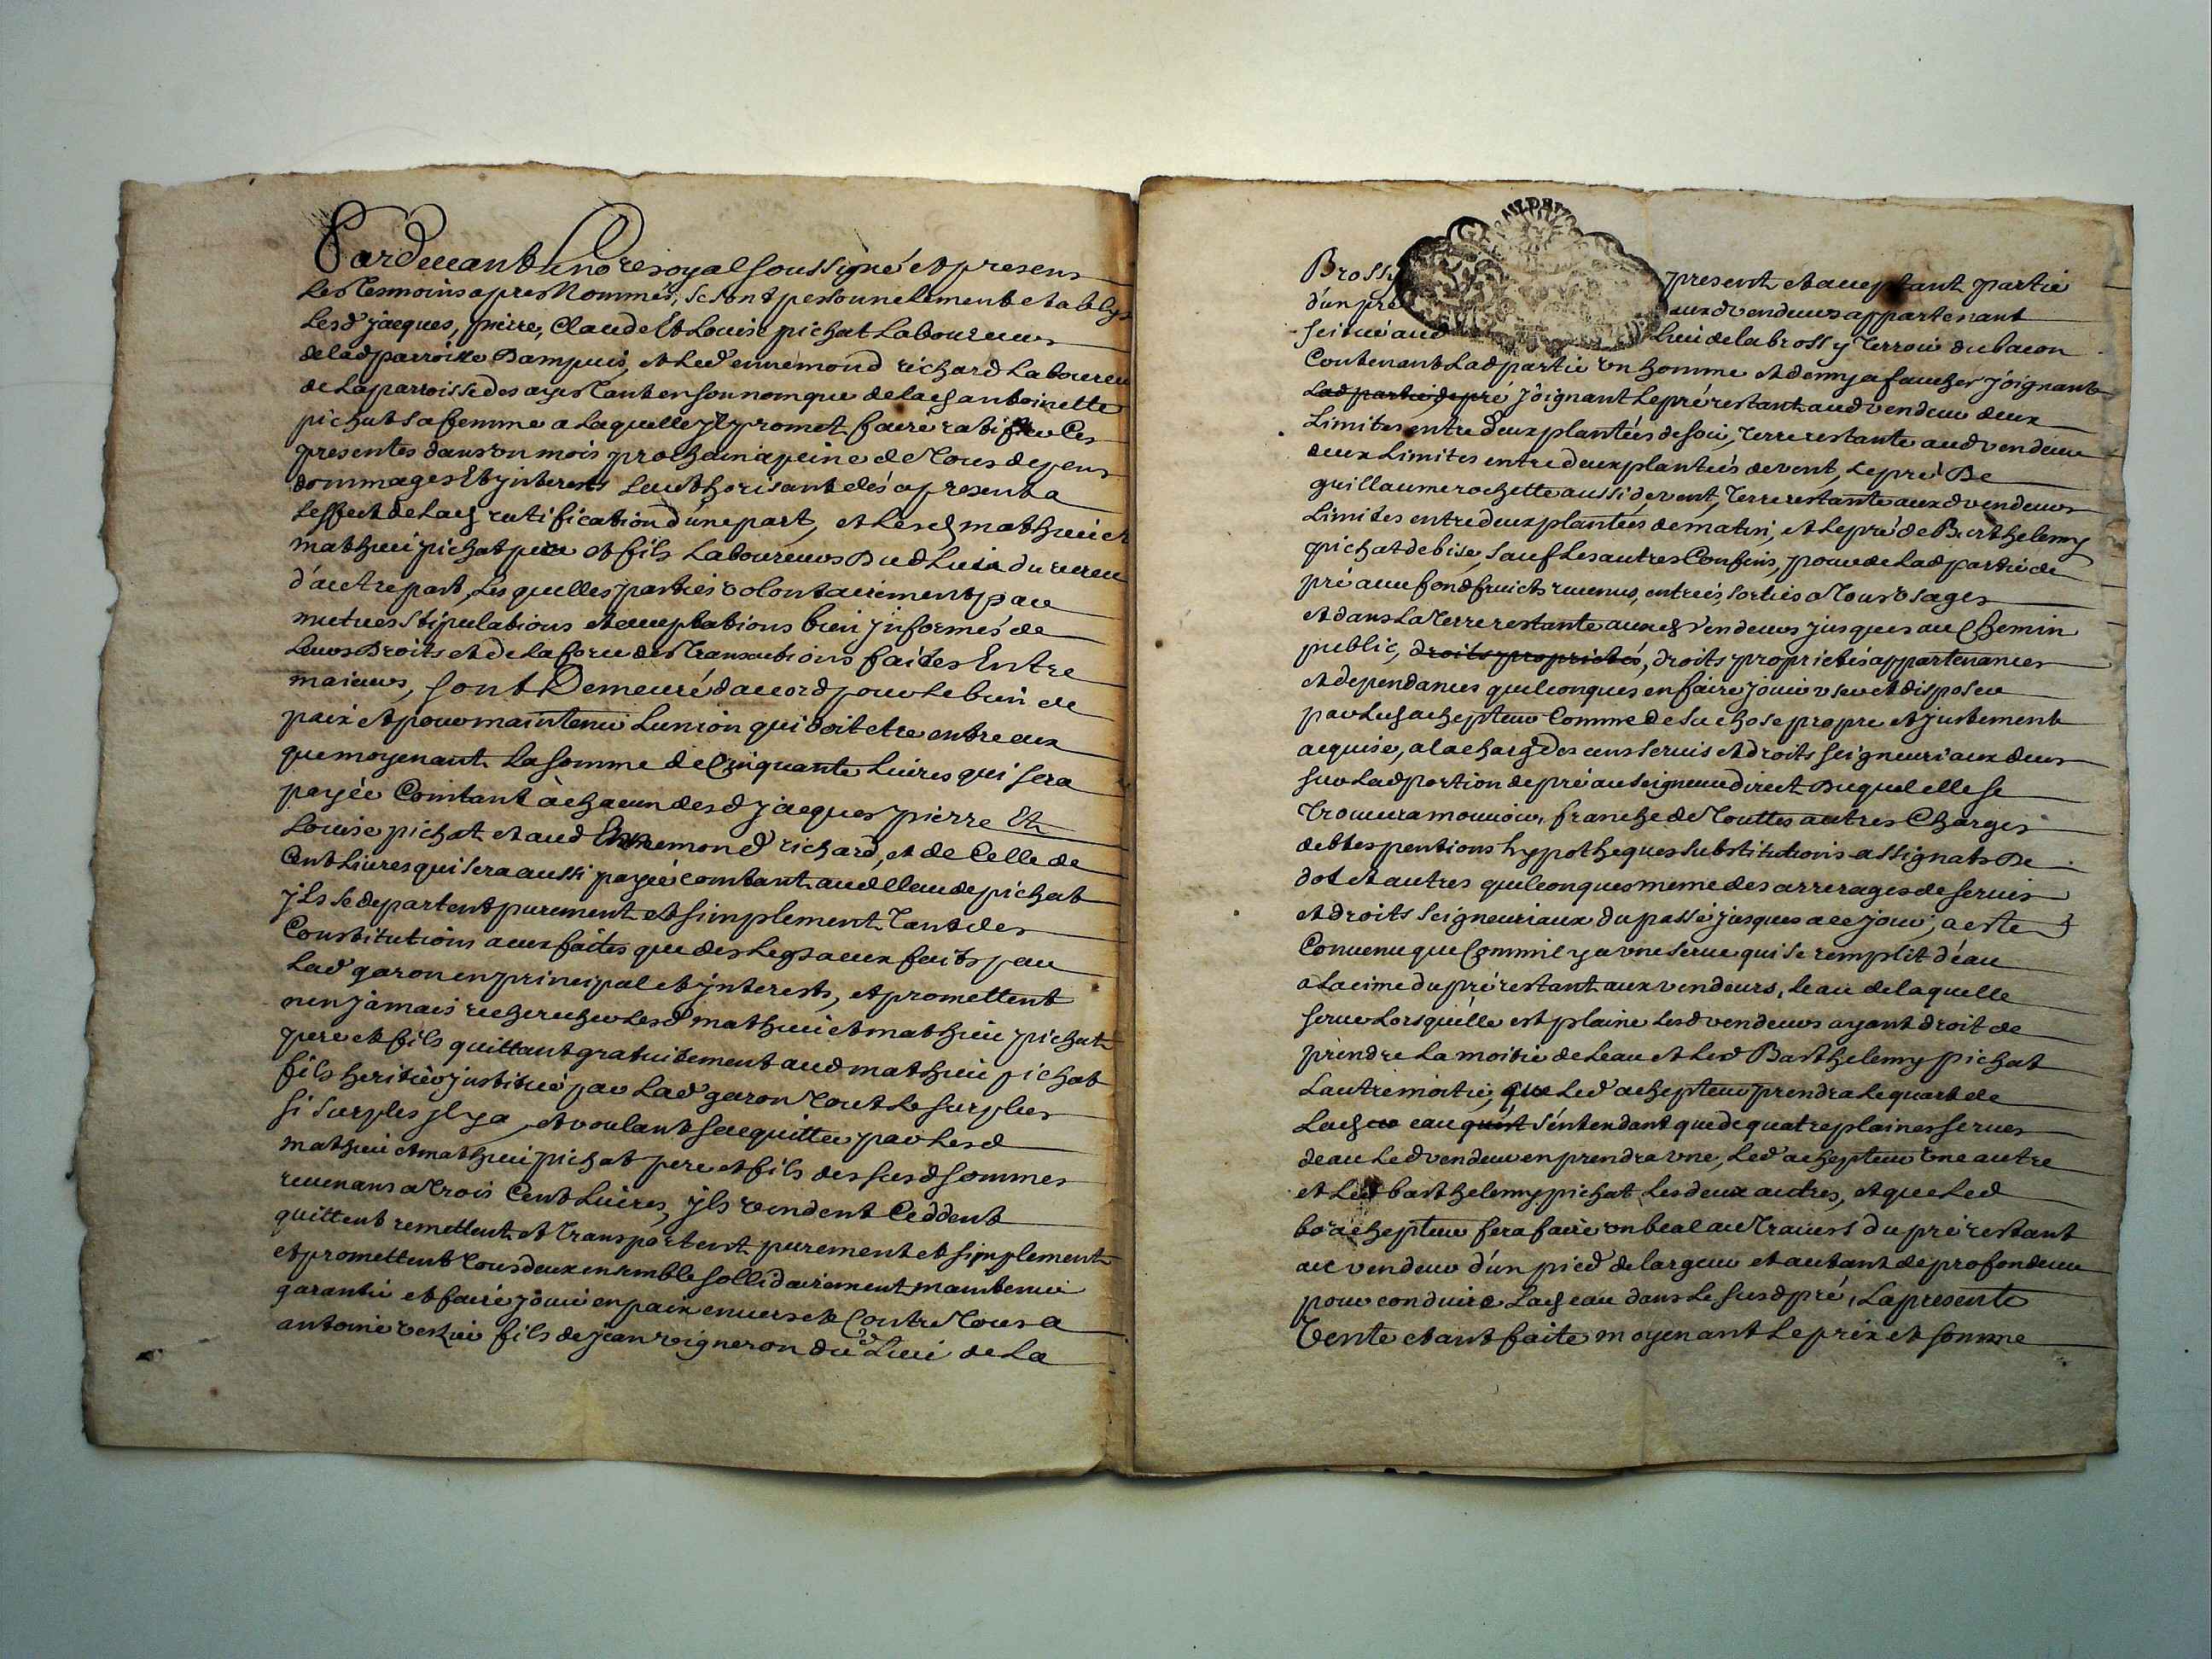 Pardevant le no.re royal soussigné et presens
les tesmoins apres Nommés, se sont personnelement etablys
Lesd jacques, pierre, Claude Et Louise pichat Laboureurs
de lad parroisse Dampuis, et Led ennemond richard Laboureur
de La parroisse des ayes tant en son nom que de lad anthoinette
pichat sa femme a Laquelle jl promet faire ratifier Ces
presentes dans un mois prochain a peine de tous depens
dommages Et jnterests Lauthorisant dés a present a
Leffect de Lad ratification d'une part, et Lesd mathieu et
mathieu pichat pere et fils Laboureurs Dud Lieu du
d'autre part, Les quelles parties volontairement par
mutues stipulations et acceptations bien jnformés de
Leurs Droits et de La force des transactions faites Entre
majeurs, sont Demeuré d'accord pour Le bien de
paix et pour maintenir Lunion qui doit etre entre eux
que moyenant La somme de Cinquante Livres qui sera
payée Comtant à chacun desd jacques pierre Et
Louise pichat et aud Ennemond richard, et de Celle de
Cent Livres qui sera aussi payée comtant aud Claude pichat
jls se departent purement et simplement tant des
Constitutions a eux faites que des Legs a eux faits par
Lad garon en principal et jnterests, et promettent
nen jamais rechercher Lesd mathieu et mathieu pichat
pere et fils quittant gratuitement aud mathieu pichat
fils heritier jnstitué par Lad garon tout Le surplus
si surplus jl y a, et voulant sacquitter par Lesd
mathieu et mathieu pichat pere et fils des susd sommes
revenans a trois Cent Livres, jls vendent Ceddent
quittent remettent et transportent purement et simplement
et promettent tous deux ensemble sollidairement maintenir
garantir et faire jouir en paix envers et Contre tous a
antoine verzier fils de jean vigneron dud Lieu de La
Brossy present et acceptant partie
d'un pré auxd vendeurs appartenant
scitué aud Lieu de la brossy terroir du bacon
Contenant Lad partie un homme et demy a faucher joignant
Lad partie de pré joignant Le pré restant aud vendeur deux
Limites entre deux plantées de soir, terre restante aud vendeur
deux Limites entre deux plantées de vent, Le pré De
guillaume rochette aussi de vent, terre restante auxd vendeurs
Limites entre deux plantées de matin, et Le pré de Barthelemy
pichat de bise, sauf Les autres Confins, pour de Lad partie de
pré avec fond fruicts revenus, entrées, sorties a tous usages
et dans La terre restante auxd vendeurs jusques au Chemin
public, droits proprietés, droits proprietés appartenances
et dependances quelconques en faire jouir user et disposer
par Led achepteur Comme de sa chose propre et justement
acquise, a la charge des cens servis et droits seigneuriaux deus
sur Lad portion de pré au seigneur direct Duquel elle se
trouvera mouvoir, franche de touttes autres Charges
debtes pentions hypotheques substitutions assignats De
dot et autres quelconques meme des arrerages de servis
et droits seigneuriaux du passé jusques a ce jour, a esté
Convenu que Comm'il y a une serve qui se remplit d'eau
a La cime du pré restant aux vendeurs, Leau de laquelle
serve Lorsqu'elle est plaine Lesd vendeurs ayant droit de
prendre La moitié de Leau et Led Barthelemy pichat
L'autre moitié, que Led achepteur prendra Le quart de
Lad eau quest s'entendant que de quatre plaines serves
deau Led vendeur en prendra une, Led achepteur une autre
et Led barthelemy pichat Les deux autres, et que Led
achepteur fera faire un beal au travers du pré restant
au vendeur d'un pied de largeur et autant de profondeur
pour conduire Lad eau dans Le susd pré, La presente
Vente etant faite moyenant Le prix et somme